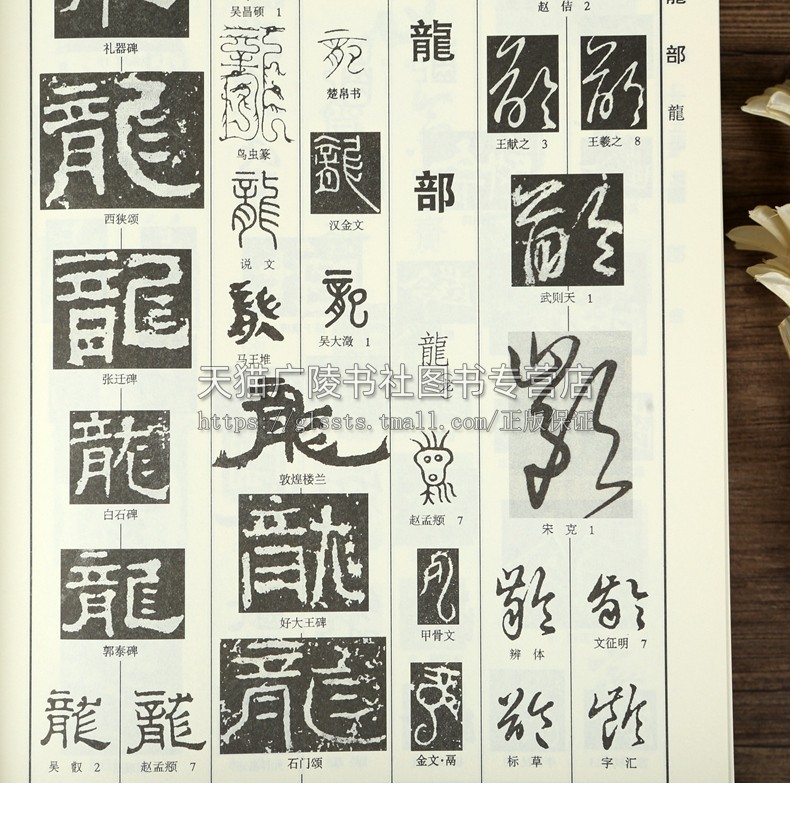 龍
部
龍
龍
部
龍
赵孟頫 7
甲骨文
金文·鬲
赵 佶 2
王献之 3
王羲之 8
武则天 1
宋 克 1
辨 体
文征明 7
标 草
字 汇
楚帛书
汉金文
吴大澂 1
吴昌硕 1
鸟虫篆
说 文
马王堆
敦煌楼兰
好大王碑
石门颂
礼器碑
西狭颂
张迁碑
白石碑
郭泰碑
吴 叡 2
赵孟頫 7
天猫广陵书社图书专营店
https://glssts.tmall.com/正版保证